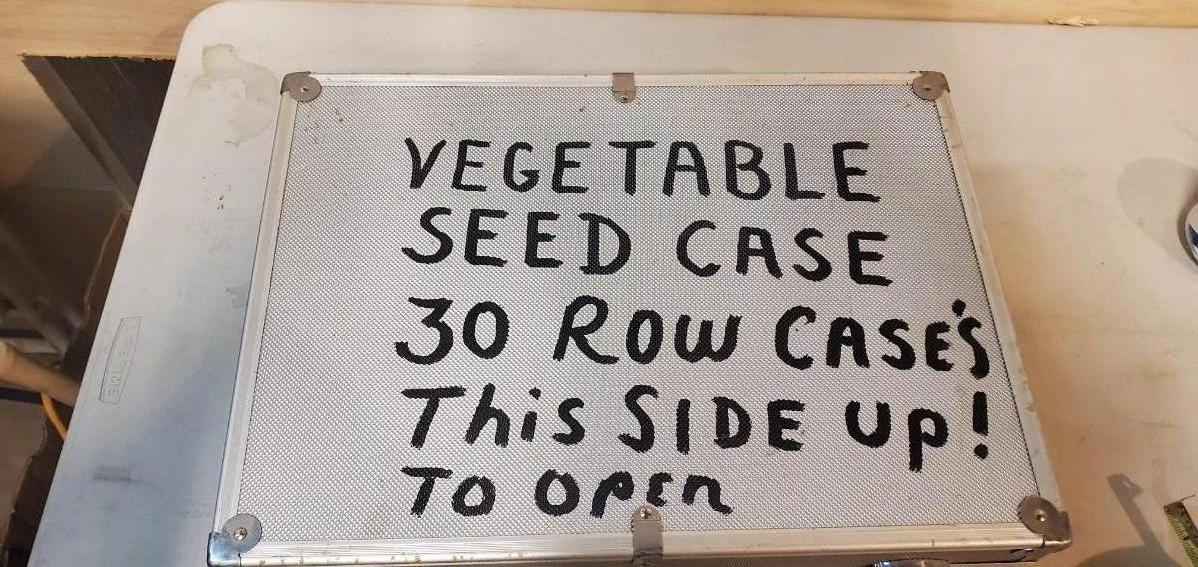 VEGETABLE
SEED CASE
30 ROW CASE'S
This SIDE Up!
TO OPEn
LIFETIME